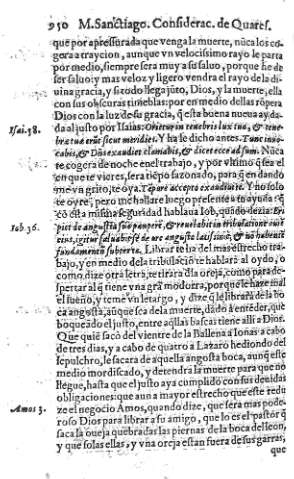 950 M. Sanctiago. Considerac. de Quares.
que por apressurada que venga la muerte, nūca los co-
gera a traycion, aunque vn velocissimo rayo le parta
por medio, siempre sera muy a su saluo, porque ha de
ser saluo: y mas veloz y ligero vendra el rayo de la di-
uina gracia, y si todo llega jūto, Dios, y la muerte, ella
con sus obscuras tinieblas: por en medio dellas rōpera
Dios con la luz de su gracia, q̄ esta buena nueua ay da-
Isai. 58. da al justo por Isaias: Orietur in tenebris lux tua, & tene-
bræ tuæ erūt sicut meridies. Y ha se dicho antes. Tunc inuo-
cabis, & Dñs exaudiet: clamabis, & dicet ecce ad sum. Nūca
te cogera de noche en el trabajo, y por vltimo q̄ sea el
en que te vieres, sera tiēpo sazonado, para q̄ en dando
me vn grito, te oya. Tēpore accepto exaudiui te. Y no solo
te oyre, pero me hallare luego presente a tu ayuda: q̄
cō esta misma seguridad hablaua Iob, quādo dezia: Eri
Iob. 36. piet de angustia sua pauperē, & reuelabit in tribulatione aurē
eius, igitur saluabit te de ore angusto latissimè, & nō habente
fundamentū subter se. Librar te ha del mas estrecho tra-
bajo, y en medio de la tribulaciō te hablarà al oydo, o
como dize otra letra, te tirara dla oreja, como para de-
spertar al q̄ tiene vna grā modorra, porque le haze mal
el sueño, y teme vn letargo, y dize q̄ le librarà de la bo
ca angosta, aūque sea de la muerte, dādo a entēder, que
boqueado el justo, entre aq̄llas bascas tiene alli a Dios.
Que quiē sacò del vientre de la Ballena a Ionas a cabo
de tres dias, y a cabo de quatro a Lazaro hediondo del
sepulchro, le sacara de aquella angosta boca, aunq̄ este
medio mordiscado, y detendra la muerte para que no
llegue, hasta que el justo aya cumplido con sus deuidas
obligaciones: que aun a mayor estrecho que este redu
Amos 3. ze el negocio Amos, quando dize, que sera mas pode-
roso Dios para librar a su amigo, que lo es el pastor q̄
saca la oueja quebradas las piernas de la boca del leon,
y que solas ellas, y vna oreja estan fuera de sus garras,
que